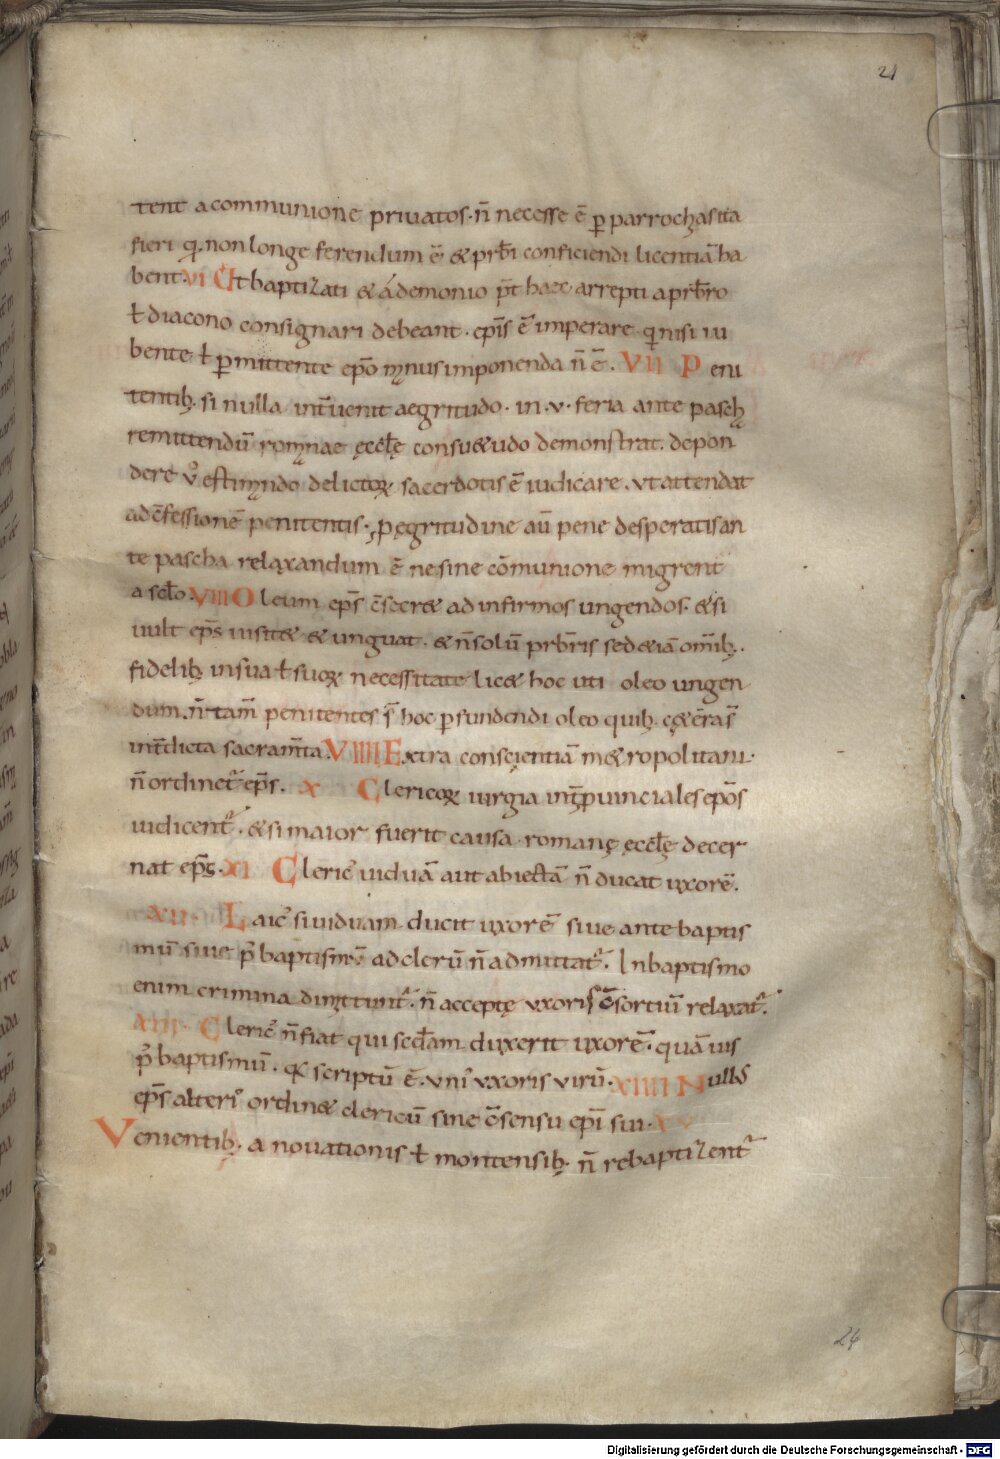 21
tent a communione priuatos. n̄ necesse ē ꝑ parrochias ita
fieri ꝙ non longe ferendum ē. & prb̄i conficiendi licentiā ha
bent. VI Ut baptizati & á demonio p̄t haec arrepti a prb̄ro
ƚ diacono consignari debeant. ep̄is ē imperare. qui nisi iu
bente ƚ ꝑmittente ep̄o manus imponenda n̄ ē. VII Peni
tentib; si nulla int̄uenit aegritudo. in. v. feria ante pasch
remittendū romanae ęccl̄ę consu&udo demonstrat. de pon
dere v̊ estimando delictoꝝ sacerdotis ē iudicare. vt attendat
ad c̄fessionē penitentis. p̱ ęgritudine aū pene desperatis an
te pascha relaxandum ē ne sine cōmunione migrent
a scl̄o. VIII Oleum ep̄s c̄secr& ad infirmos ungendos. & si
uult ep̄s uisit& & unguat. & n̄ solū prb̄ris sed & iā om̄ib;.
fidelib; in sua ƚ suoꝝ necessitate lic& hoc uti oleo ungen
dum. n̄ tam̄ penitentes s̄ hoc ꝑfundendi oleo quib; c&eras
int̄dicta sacram̄ta. VIIII Extra conscientiā m&ropolitani.
n̄ ordinet᷒ ep̄s. X Clericoꝝ iurgia int̄ ꝓuinciales ep̄os
iudicent᷒. & si maior fuerit causa. romanę ęccl̄ę decer
nat ep̄s. XI Cleric᷒ uiduā aut abiectā n̄ ducat uxorē.
XII. Laic᷒ si uiduam ducit uxorē siue ante baptis
mū siue p᷒ baptismū. ad clerū n̄ admittat᷒. In baptismo
enim crimina dimittunt᷒. n̄ acceptę vxoris c̄sortiū relaxat᷒.
XIII. Cleric᷒ n̄ fiat qui scd̄am duxerit uxorē. quā uis
p᷒ baptismū. q; scriptū ē. vni᷒ vxoris virū. XIIII Nullus
ep̄s alteri᷒ ordin& clericū sine c̄sensu ep̄i sui. XV
Venientib;. a nouatianis ƚ montensib;. n̄ rebaptizent᷒
24
Digitalisierung gefördert durch die Deutsche Forschungsgemeinschaft - DFG